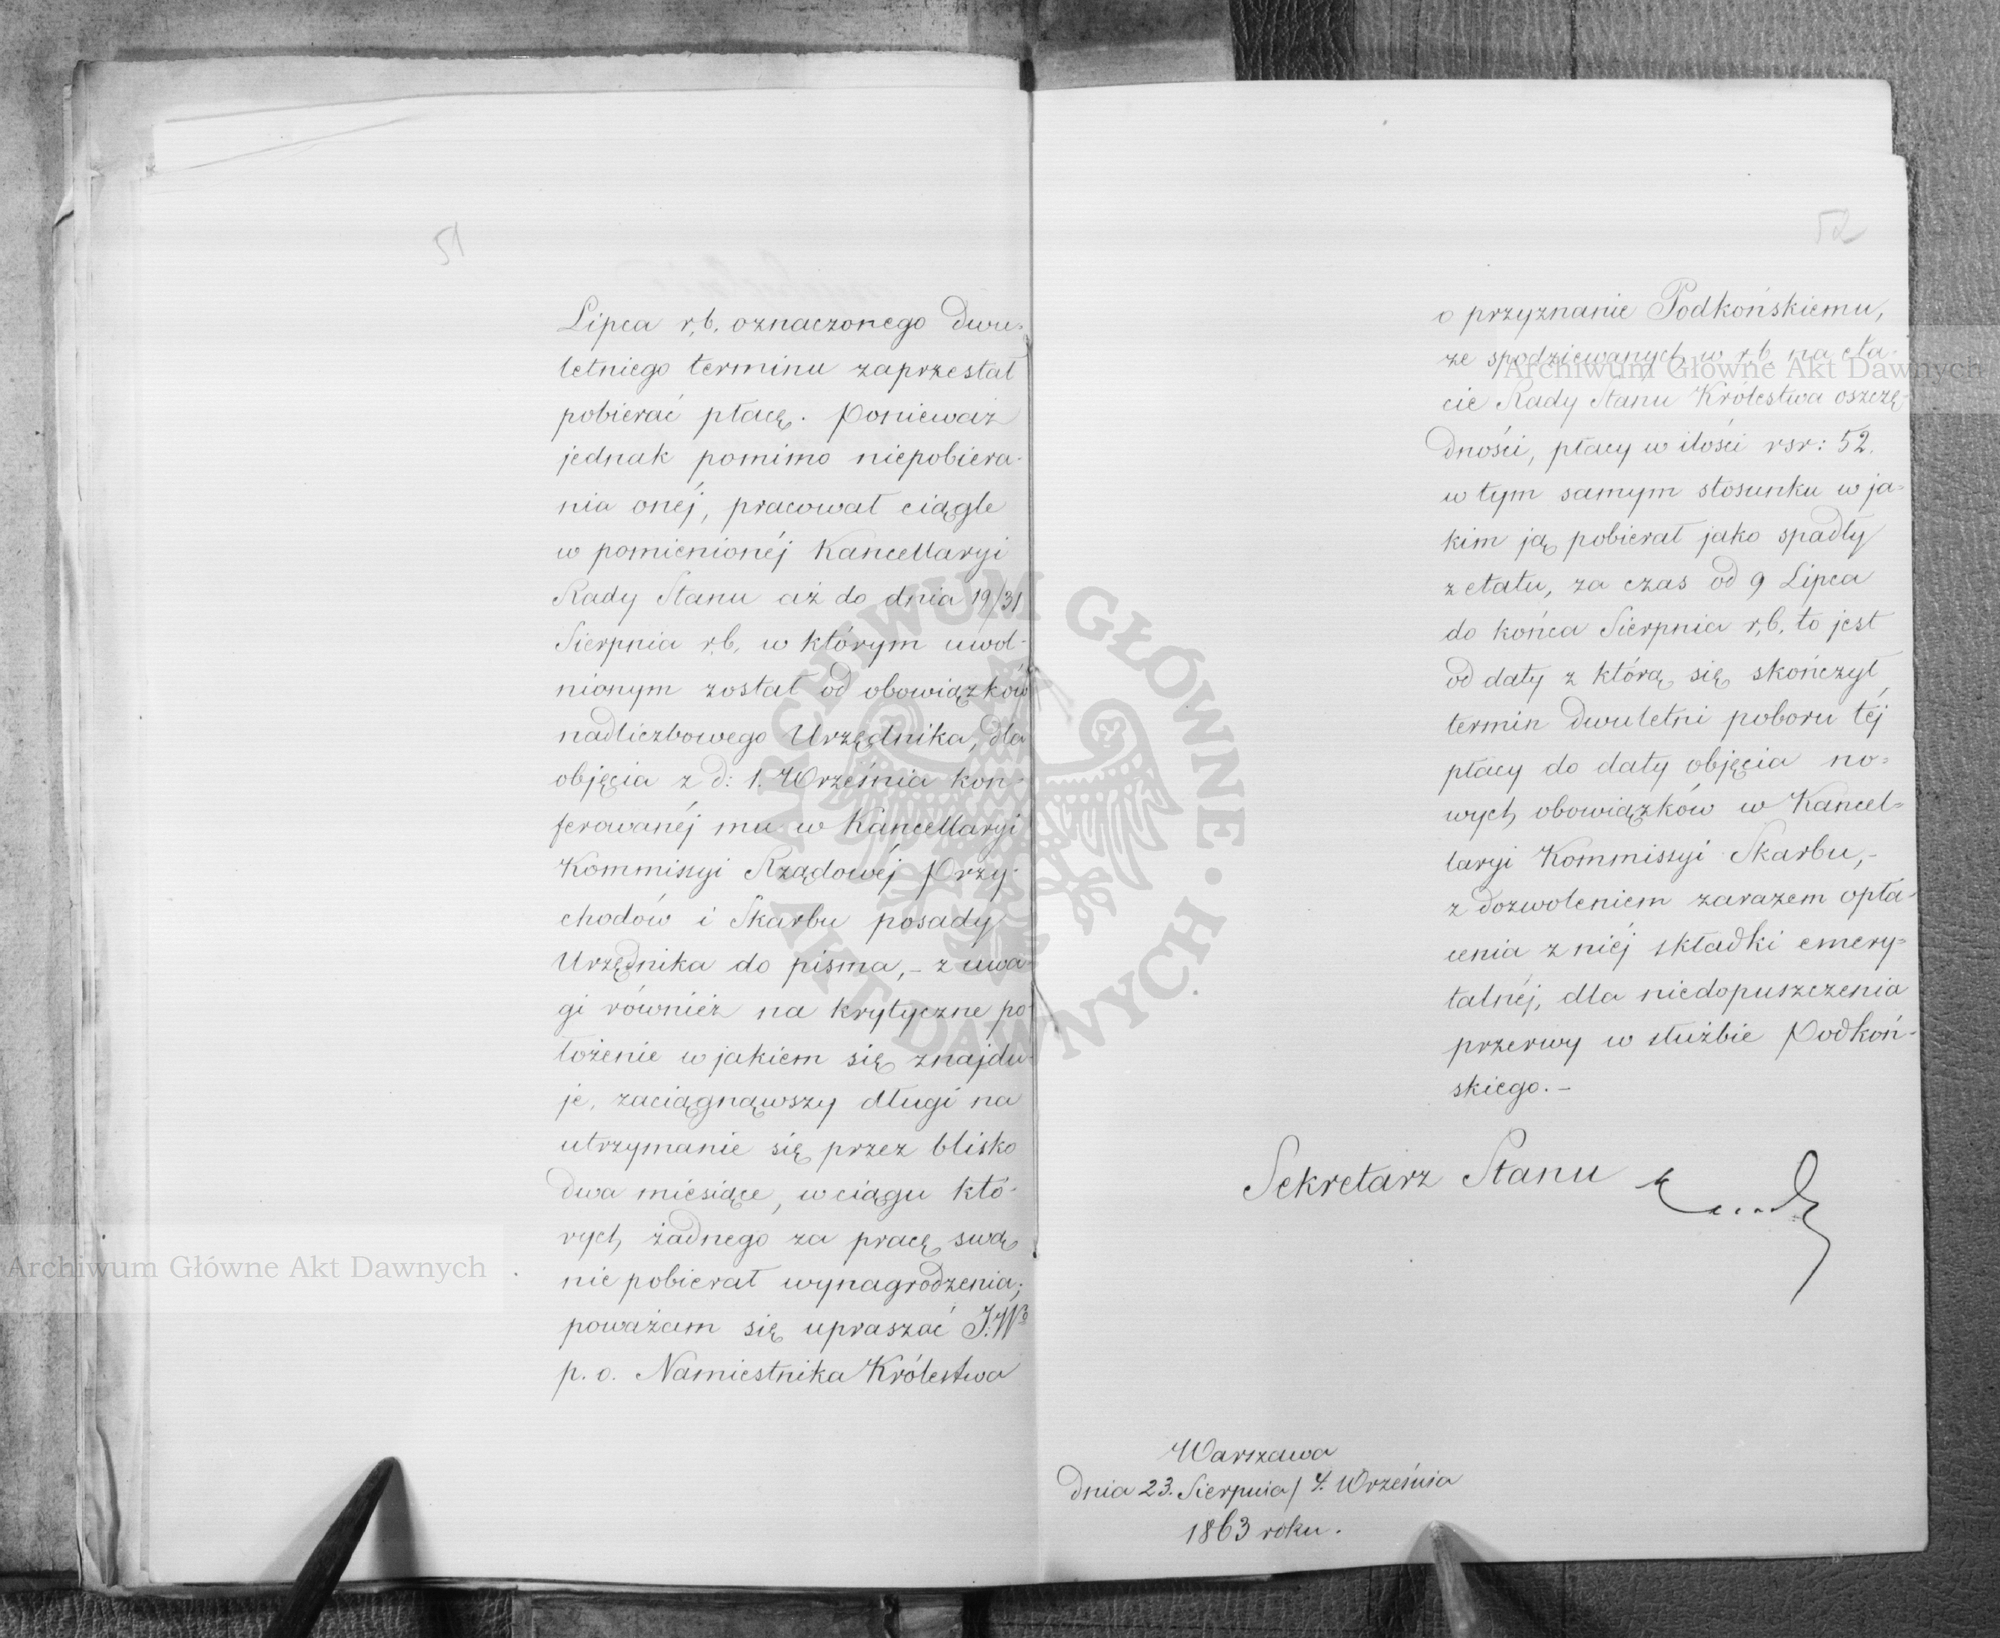 51
Lipca r,b, oznaczonego dwu-
letniego terminu zaprzestał
pobierać płacę. Ponieważ
jednak pomimo niepobiera-
nia onéj, pracował ciągle
w pomienionéj Kancellaryi
Rady Stanu aż do dnia 19/31
Sierpnia r,b, w którym uwol-
nionym został od obowiązków
nadliczbowego Urzędnika, dla
objęcia z d: 1. Września kon-
ferowanéj mu w Kancellaryi
Kommissyi Rządowéj Przy-
chodów i Skarbu posady
Urzędnika do pisma, – z uwa-
gi również na krytyczne po-
łożenie w jakiem się znajdu-
je, zaciągnąwszy długi na
utrzymanie się przez blisko
dwa miesiące, w ciągu któ-
rych żadnego za pracę swą
nie pobierał wynagrodzenia;
poważam się upraszać J.Wo
p. o. Namiestnika Królestwa
52
o przyznanie Podkońskiemu,
ze spodziewanych w r,b, na eta-
cie Rady Stanu Królestwa oszczę-
dności, płacy w ilości rsr: 52.
w tym samym stosunku w ja-
kim ją pobierał jako spadły
z etatu, za czas od 9 Lipca
do końca Sierpnia r,b, to jest
od daty z którą się skończył
termin dwuletni poboru téj
płacy do daty objęcia no-
wych obowiązków w Kancel-
laryi Kommissyi Skarbu, –
z dozwoleniem zarazem opła-
cenia z niéj składki emery-
talnéj, dla niedopuszczenia
przerwy w służbie Podkoń-
skiego. –
Sekretarz Stanu
Warszawa
dnia 23. Sierpnia / 4. Września
1863 roku.
Archiwum Główne Akt Dawnych
Archiwum Główne Akt Dawnych
ARCHIWUM GŁÓWNE · AKT DAWNYCH ·